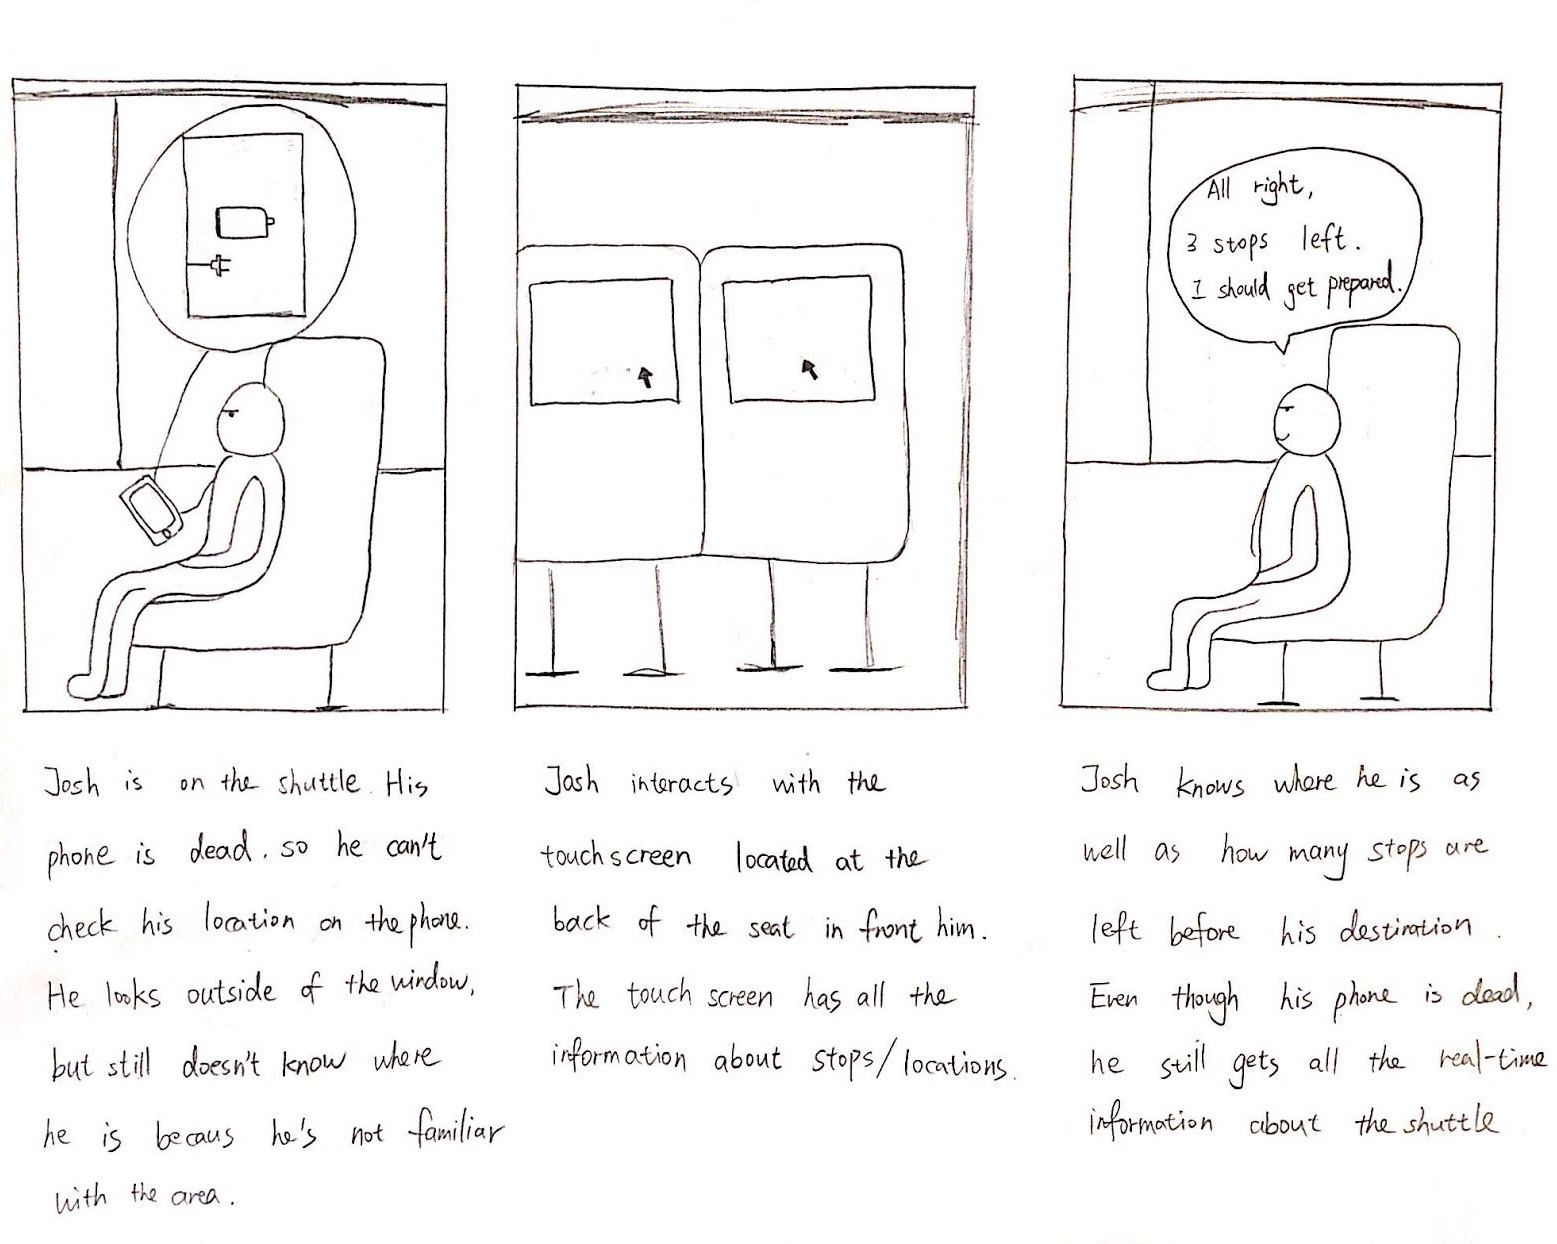 All right,
3 stops left.
I should get prepared.
Josh is on the shuttle. His
phone is dead, so he can't
check his location on the phone.
He looks outside of the window,
but still doesn't know where
he is becaus he's not familiar
with the area.
Josh interacts with the
touchscreen located at the
back of the seat in front him.
The touch screen has all the
information about stops/locations.
Josh knows where he is as
well as how many stops are
left before his destination.
Even though his phone is dead,
he still gets all the real-time
information about the shuttle